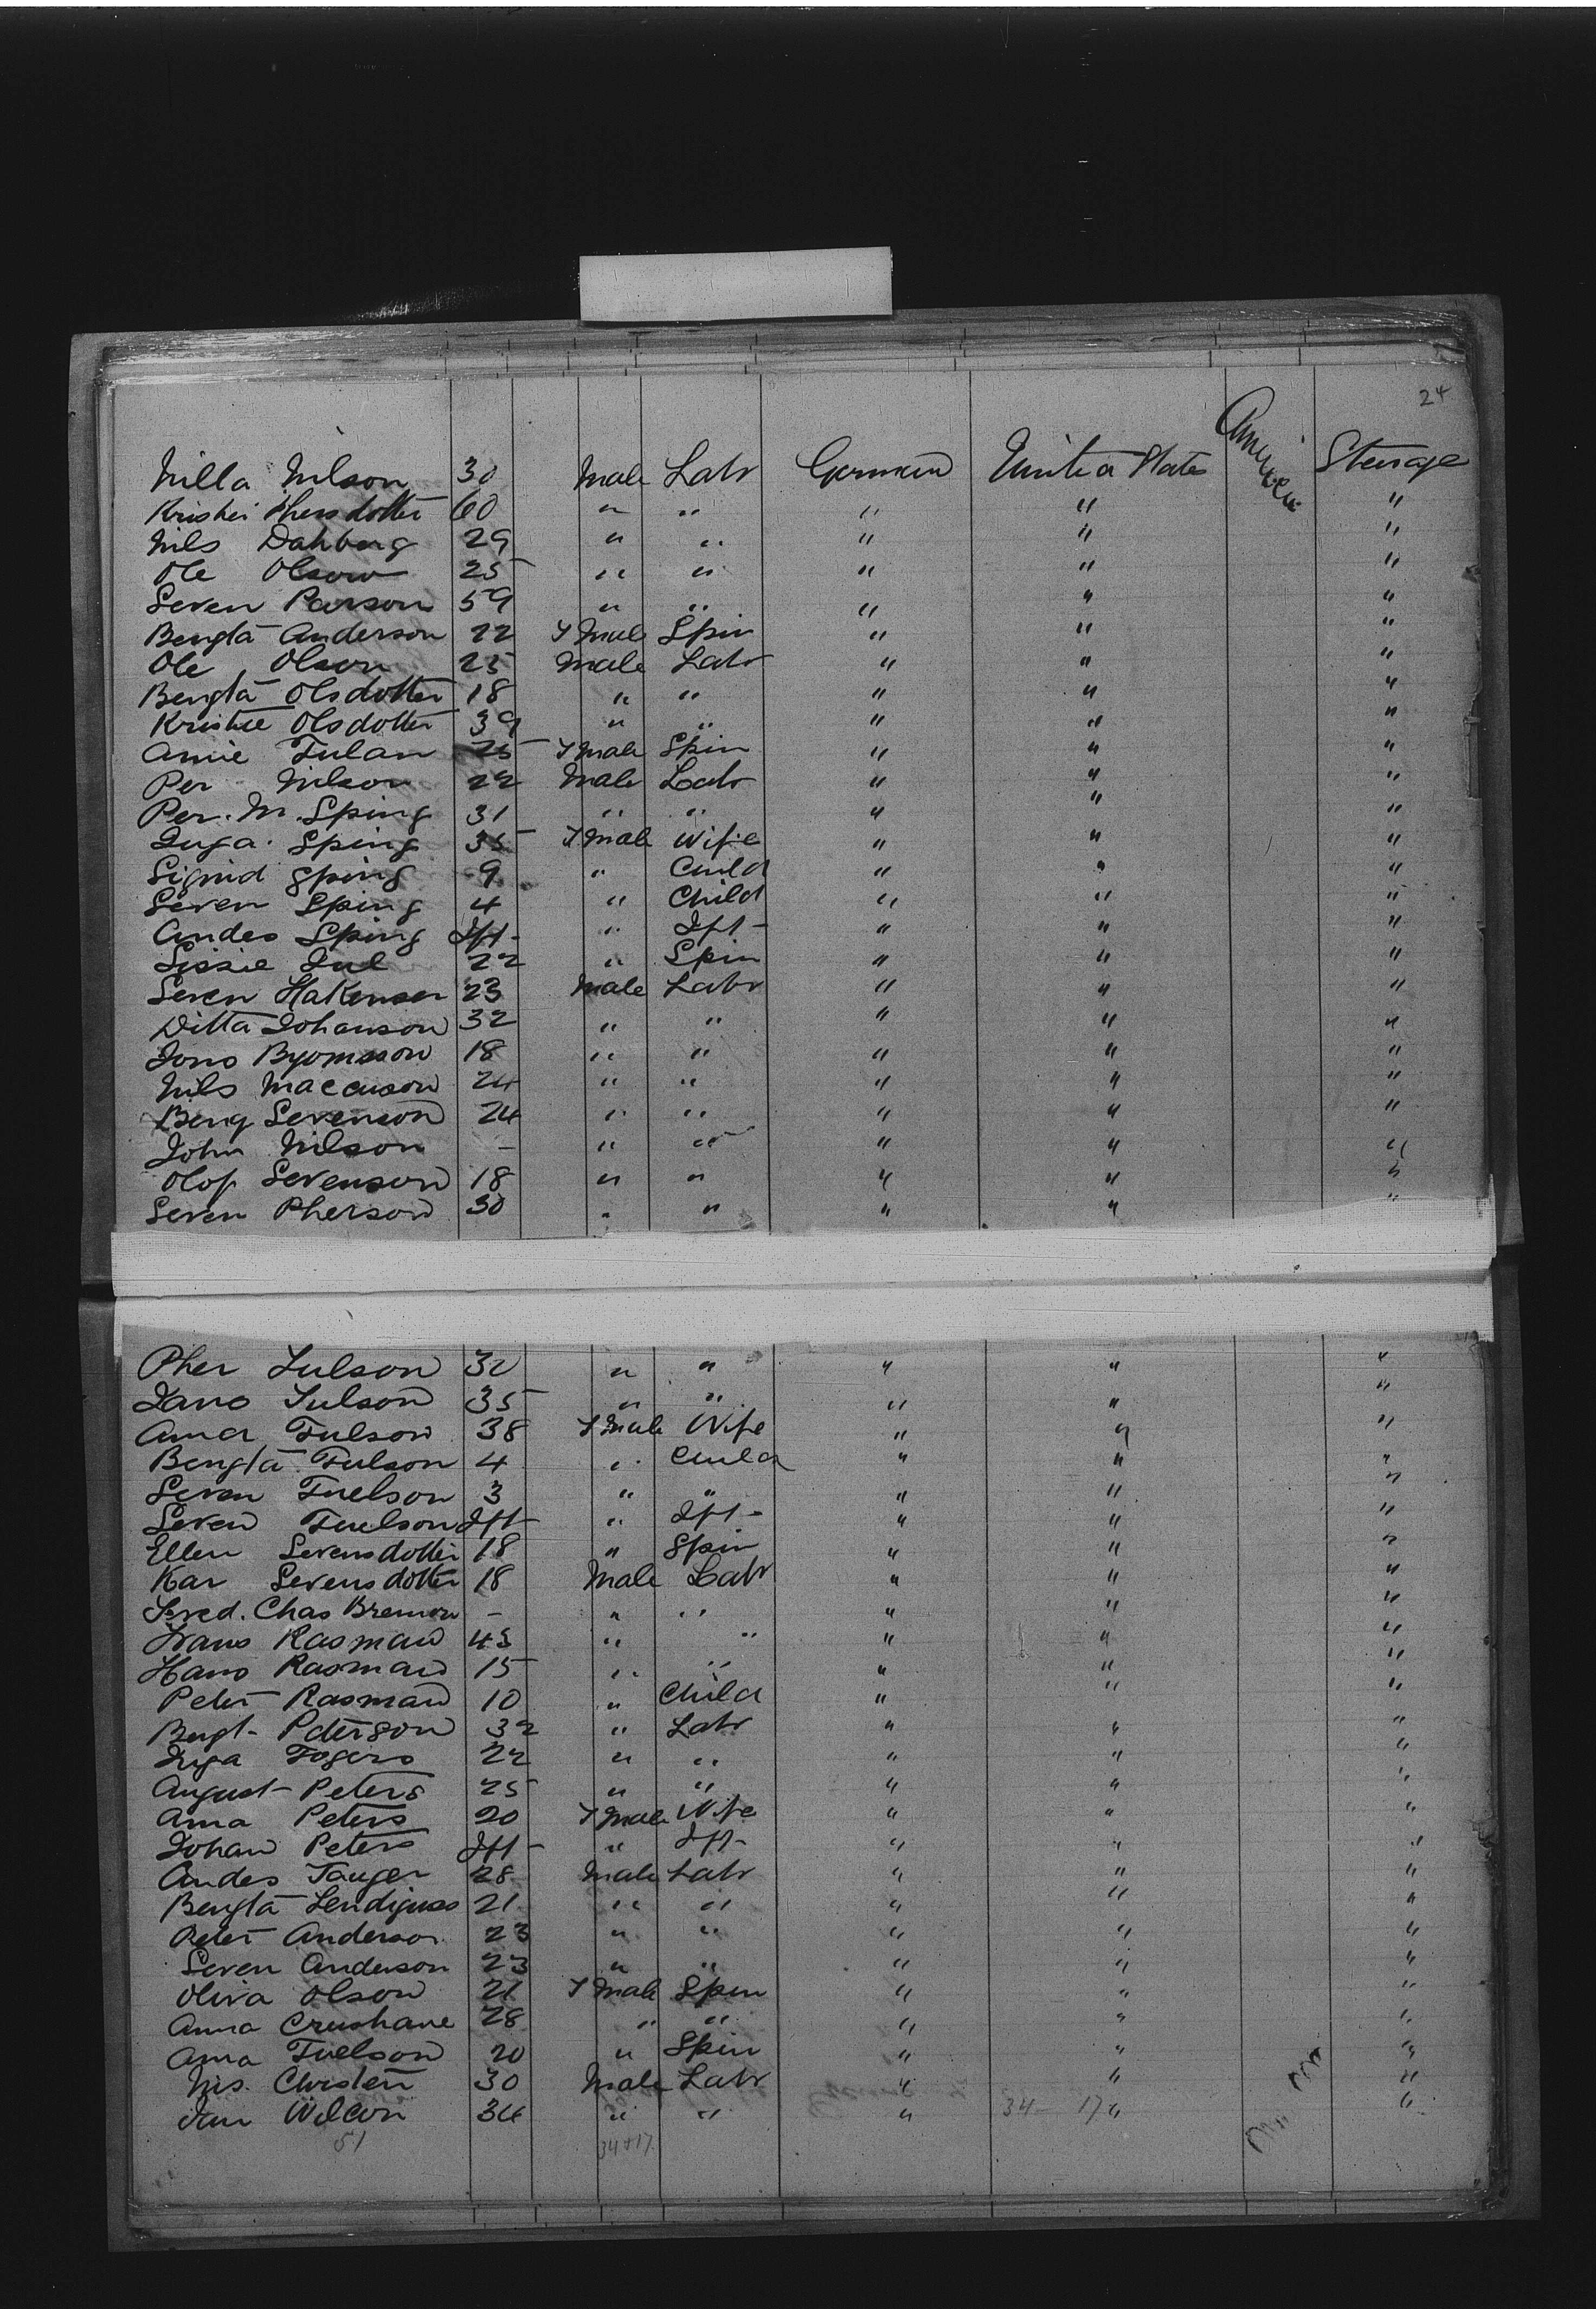 24
Nilla Nilson 30 Male Labr German United States American Steerage
Kristei Phersdotter 60 " " " " "
Nils Dahberg 29 " " " " "
Ole Olson 25 " " " " "
Seven Parson 59 " " " " "
Bengta Anderson 22 Fmale Spin " " "
Ole Olson 25 Male Labr " " "
Bengta Olsdotter 18 " " " " "
Kristie Olsdotter 39 " " " " "
Anie Tulan 25 Fmale Spin " " "
Per Nilson 22 Male Labr " " "
Per. M. Sping 31 " " " " "
Inga. Sping 35 Fmale Wife " " "
Sigrid Sping 9 " Child " " "
Seven Sping 4 " Child " " "
Andes Sping Ift- " Ift- " " "
Sissie Jul 22 " Spin " " "
Seven Hakenser 23 Male Labr " " "
Ditta Johanson 32 " " " " "
Jons Byomsson 18 " " " " "
Nils Maccuson 24 " " " " "
Beng Sevenson 24 " " " " "
John Nilson - " " " " "
Olof Sevenson 18 " " " " "
Seven Pherson 30 " " " " "
Pher Julson 30 " " " " "
Jano Tulson 35 " " " " "
Anna Tulson 38 Fmale Wife " " "
Bengta Tulson 4 " Child " " "
Seven Tuelson 3 " " " " "
Seven Tuelson Ift- " Ift- " " "
Ellen Sevensdotter 18 " Spin " " "
Kar Sevensdotter 18 Male Labr " " "
Fred. Chas Bremon - " " " " "
Frans Rasman 45 " " " " "
Hans Rasman 15 " " " " "
Peter Rasman 10 " Child " "
Bengt- Peterson 32 " Labr " " "
Inga Fogers 22 " " " " "
August Peters 25 " " " " "
Ama Peters 20 Fmale Wife " " "
Johan Peters Ift- " Ift- " " "
Andes Tauger 28 Male Labr " " "
Bengta 21 " " " " "
Peter Anderson 23 " " " " "
Seven Anderson 23 " " " " "
Oliva Olson 21 Fmale Spin " " "
Anna Crushane 28 " " " " "
Ama Tuelson 20 " Spin " " "
Nis. Christen 30 Male Labr " " "
Jan Wilson 34 " " " 34 - 17 " "
51 34+17